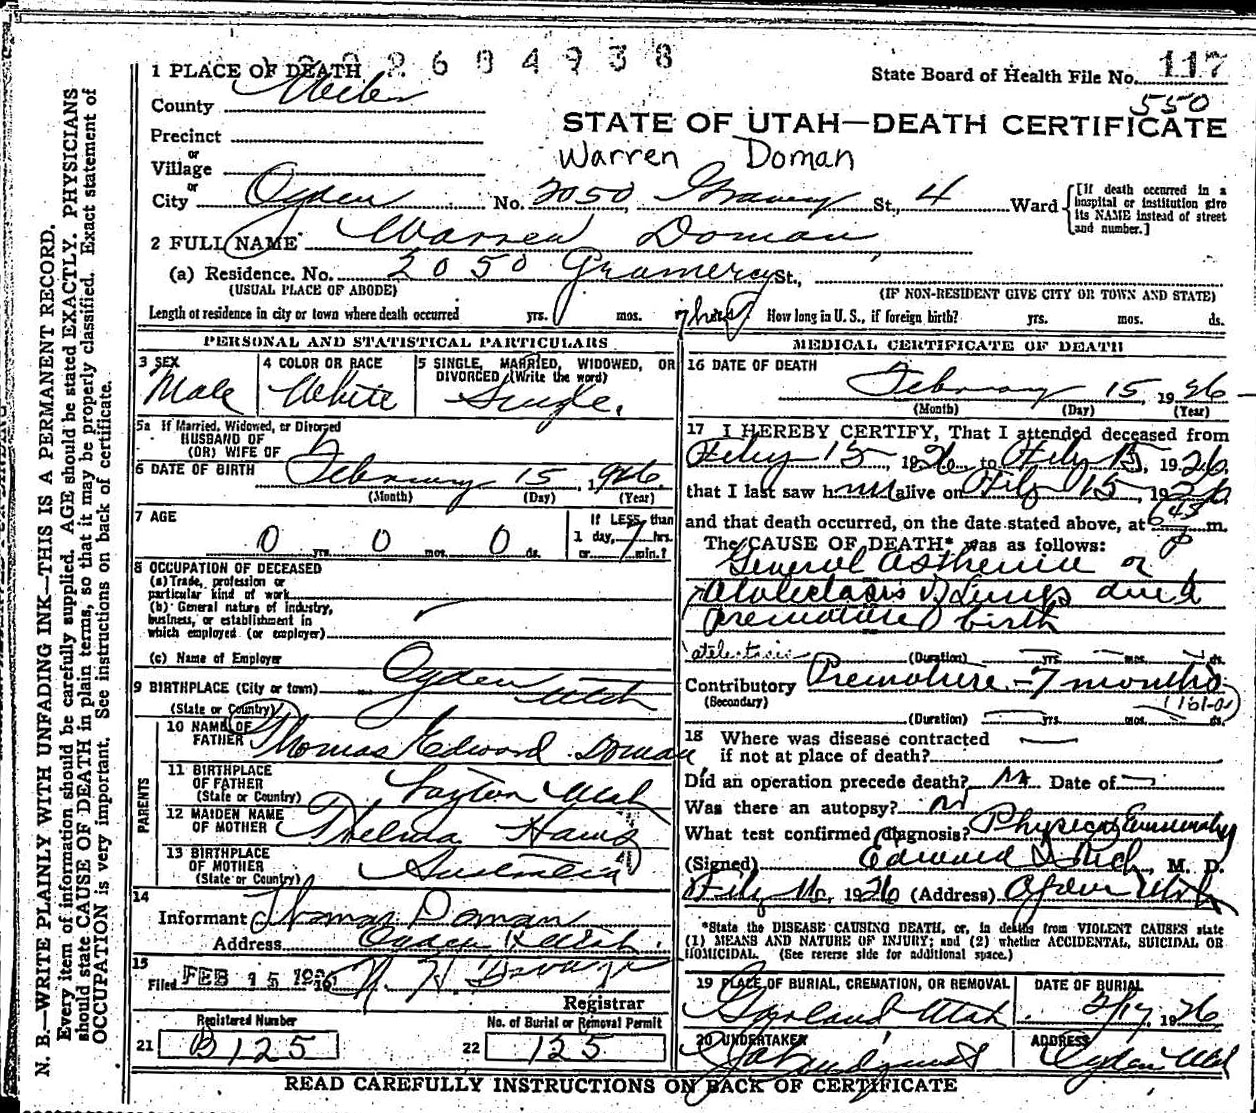 2604938
1 PLACE OF DEATH
State Board of Health File No. 117
County Weber
550
STATE OF UTAH—DEATH CERTIFICATE
Precinct
or
Warren Doman
Village
or
City Ogden No. 2050 St., 4 Ward
[If death occurred in a hospital or institution give its NAME instead of street and number.]
2 FULL NAME Warren Doman
(a) Residence. No. 2050 Gramercy St.,
(USUAL PLACE OF ABODE) (IF NON-RESIDENT GIVE CITY OR TOWN AND STATE)
Length of residence in city or town where death occurred yrs. mos. 7 hrs How long in U. S., if foreign birth? yrs. mos. ds.
PERSONAL AND STATISTICAL PARTICULARS
3 SEX Male
4 COLOR OR RACE White
5 SINGLE, MARRIED, WIDOWED, OR DIVORCED (Write the word) Single.
5a If Married, Widowed, or Divorced
HUSBAND OF
(OR) WIFE OF
6 DATE OF BIRTH February 15, 1926
(Month) (Day) (Year)
7 AGE 0 yrs. 0 mos. 0 ds.
If LESS than
1 day, 7 hrs.
or min.?
8 OCCUPATION OF DECEASED
(a) Trade, profession or
particular kind of work
(b) General nature of industry,
business, or establishment in
which employed (or employer)
(c) Name of Employer
9 BIRTHPLACE (City or town) Ogden
(State or Country) Utah
PARENTS
10 NAME OF FATHER Thomas Edward Doman
11 BIRTHPLACE OF FATHER (State or Country) Layton Utah
12 MAIDEN NAME OF MOTHER Thelma
13 BIRTHPLACE OF MOTHER (State or Country) Australia
14 Informant Thomas Doman
Address Ogden Utah.
15 Filed FEB 15 1926
Registrar
Registered Number
21 B125
No. of Burial or Removal Permit
22 125
MEDICAL CERTIFICATE OF DEATH
16 DATE OF DEATH
February 15, 1926
(Month) (Day) (Year)
17 I HEREBY CERTIFY, That I attended deceased from
Feby 15, 1926 to Feby 15, 1926
that I last saw him alive on Feby 15, 1926
and that death occurred, on the date stated above, at 6 45 P m.
The CAUSE OF DEATH* was as follows:
General asthenia or
atelectasis of Lungs due to
premature birth
atelectasis (Duration) yrs. mos. ds.
Contributory Premature - 7 months
(Secondary) (161-a)
(Duration) yrs. mos. ds.
18 Where was disease contracted
if not at place of death?
Did an operation precede death? No Date of
Was there an autopsy? no
What test confirmed diagnosis? Physical
(Signed) Edward I. Rich, M. D.
1926 (Address) Ogden Utah
*State the DISEASE CAUSING DEATH, or, in deaths from VIOLENT CAUSES state
(1) MEANS AND NATURE OF INJURY; and (2) whether ACCIDENTAL, SUICIDAL OR
HOMICIDAL. (See reverse side for additional space.)
19 PLACE OF BURIAL, CREMATION, OR REMOVAL
Garland Utah.
DATE OF BURIAL
2/17, 1926
20 UNDERTAKER
ADDRESS
Ogden Utah
READ CAREFULLY INSTRUCTIONS ON BACK OF CERTIFICATE
N. B.—WRITE PLAINLY WITH UNFADING INK—THIS IS A PERMANENT RECORD.
Every item of information should be carefully supplied. AGE should be stated EXACTLY. PHYSICIANS
should state CAUSE OF DEATH in plain terms, so that it may be properly classified. Exact statement of
OCCUPATION is very important. See instructions on back of certificate.